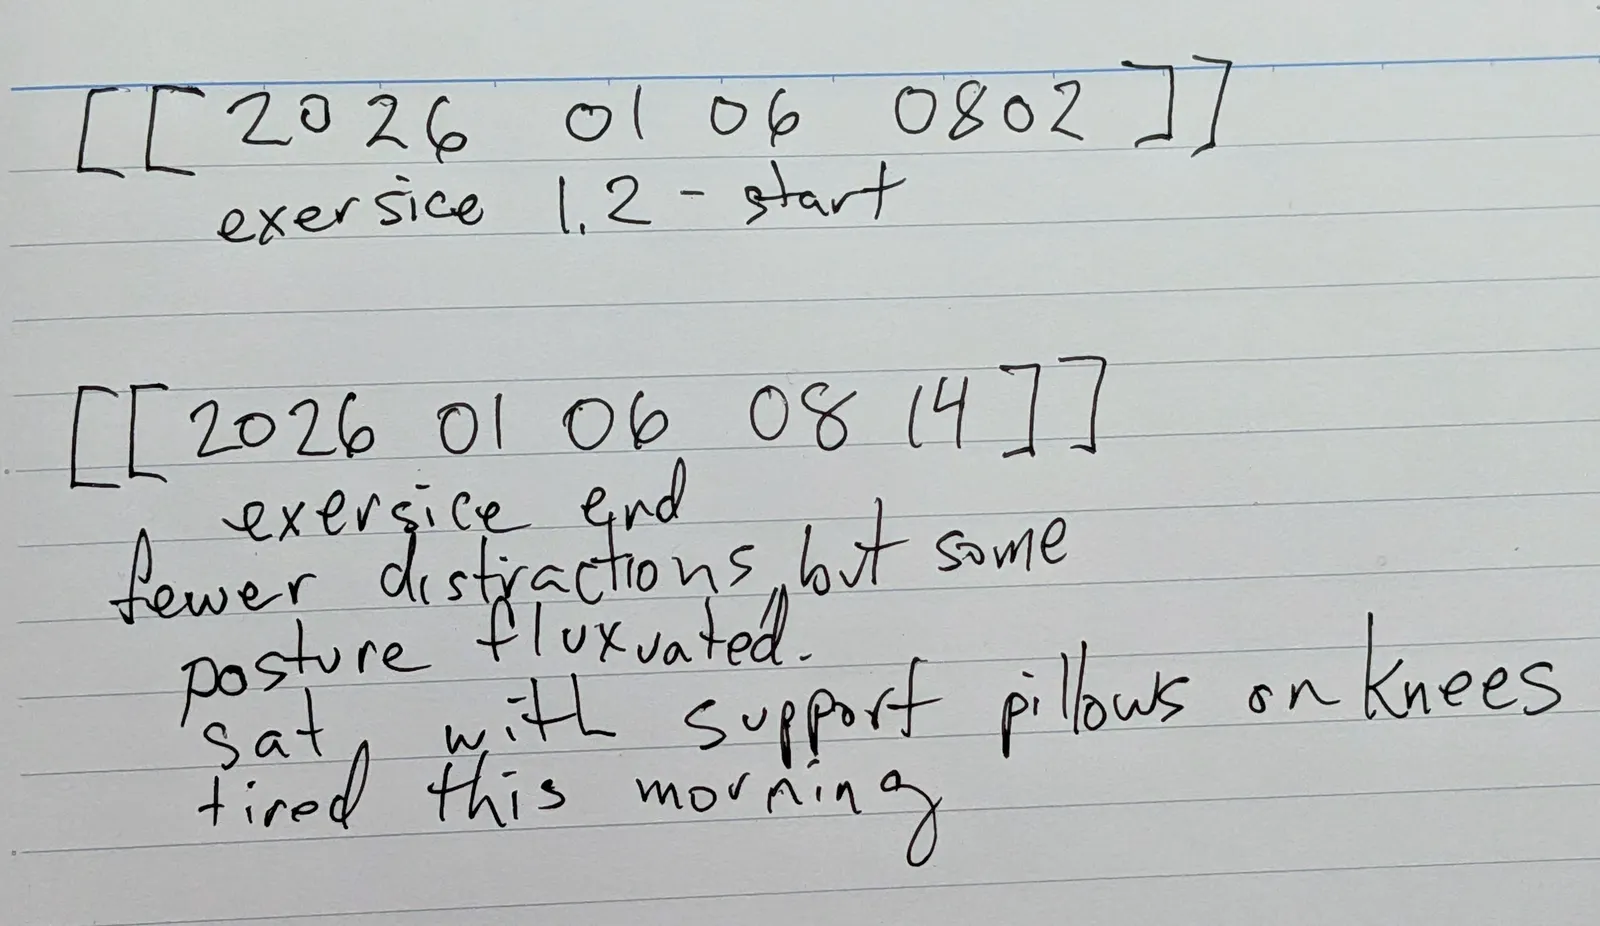 [[2026 01 06 0802]]
exersice 1.2 - start
[[2026 01 06 08 14]]
exersice end
fewer distractions, but some
posture fluxuated.
sat with support pillows on knees
tired this morning